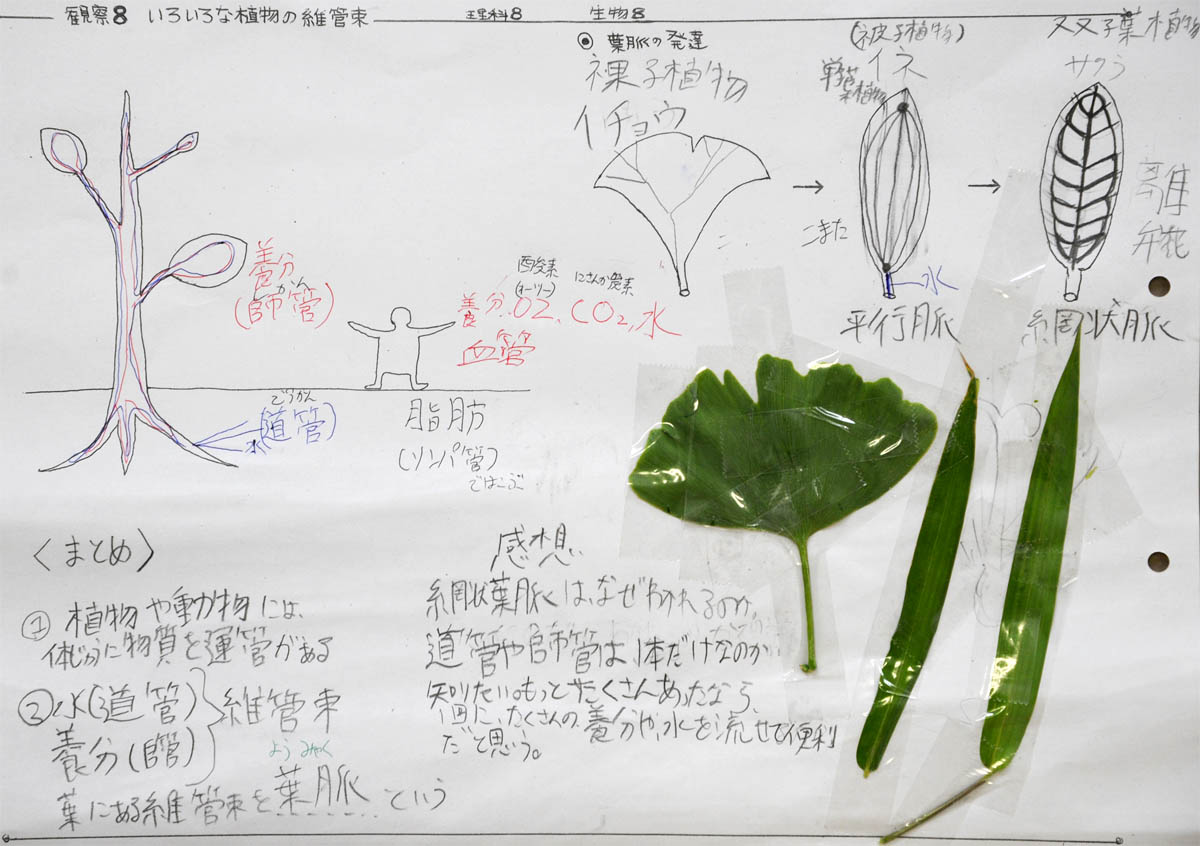 観察8 いろいろな植物の維管束
理科8
生物8
◉ 葉脈の発達
裸子植物
イチョウ
(被子植物)
イネ
単子葉植物
双子葉植物
サクラ
離弁花
→
→
こまた
水
平行脈
網状脈
養分
(師管)
かん
酸素
(オーツー)
にさんか炭素
養分、O2、CO2、水
血管
どうかん
(道管)
水
脂肪
(リンパ管)
ではこぶ
〈まとめ〉
①植物や動物には、
体じゅうに物質を運管がある
②水(道管)
養分(師管)
維管束
ようみゃく
葉にある維管束を葉脈という
感想
網状葉脈は、なぜわかれるのか、
道管や師管は、1体だけなのか
知りたい。もっとたくさんあったなら、
一回に、たくさんの養分や、水を流せて便利
だと思う。